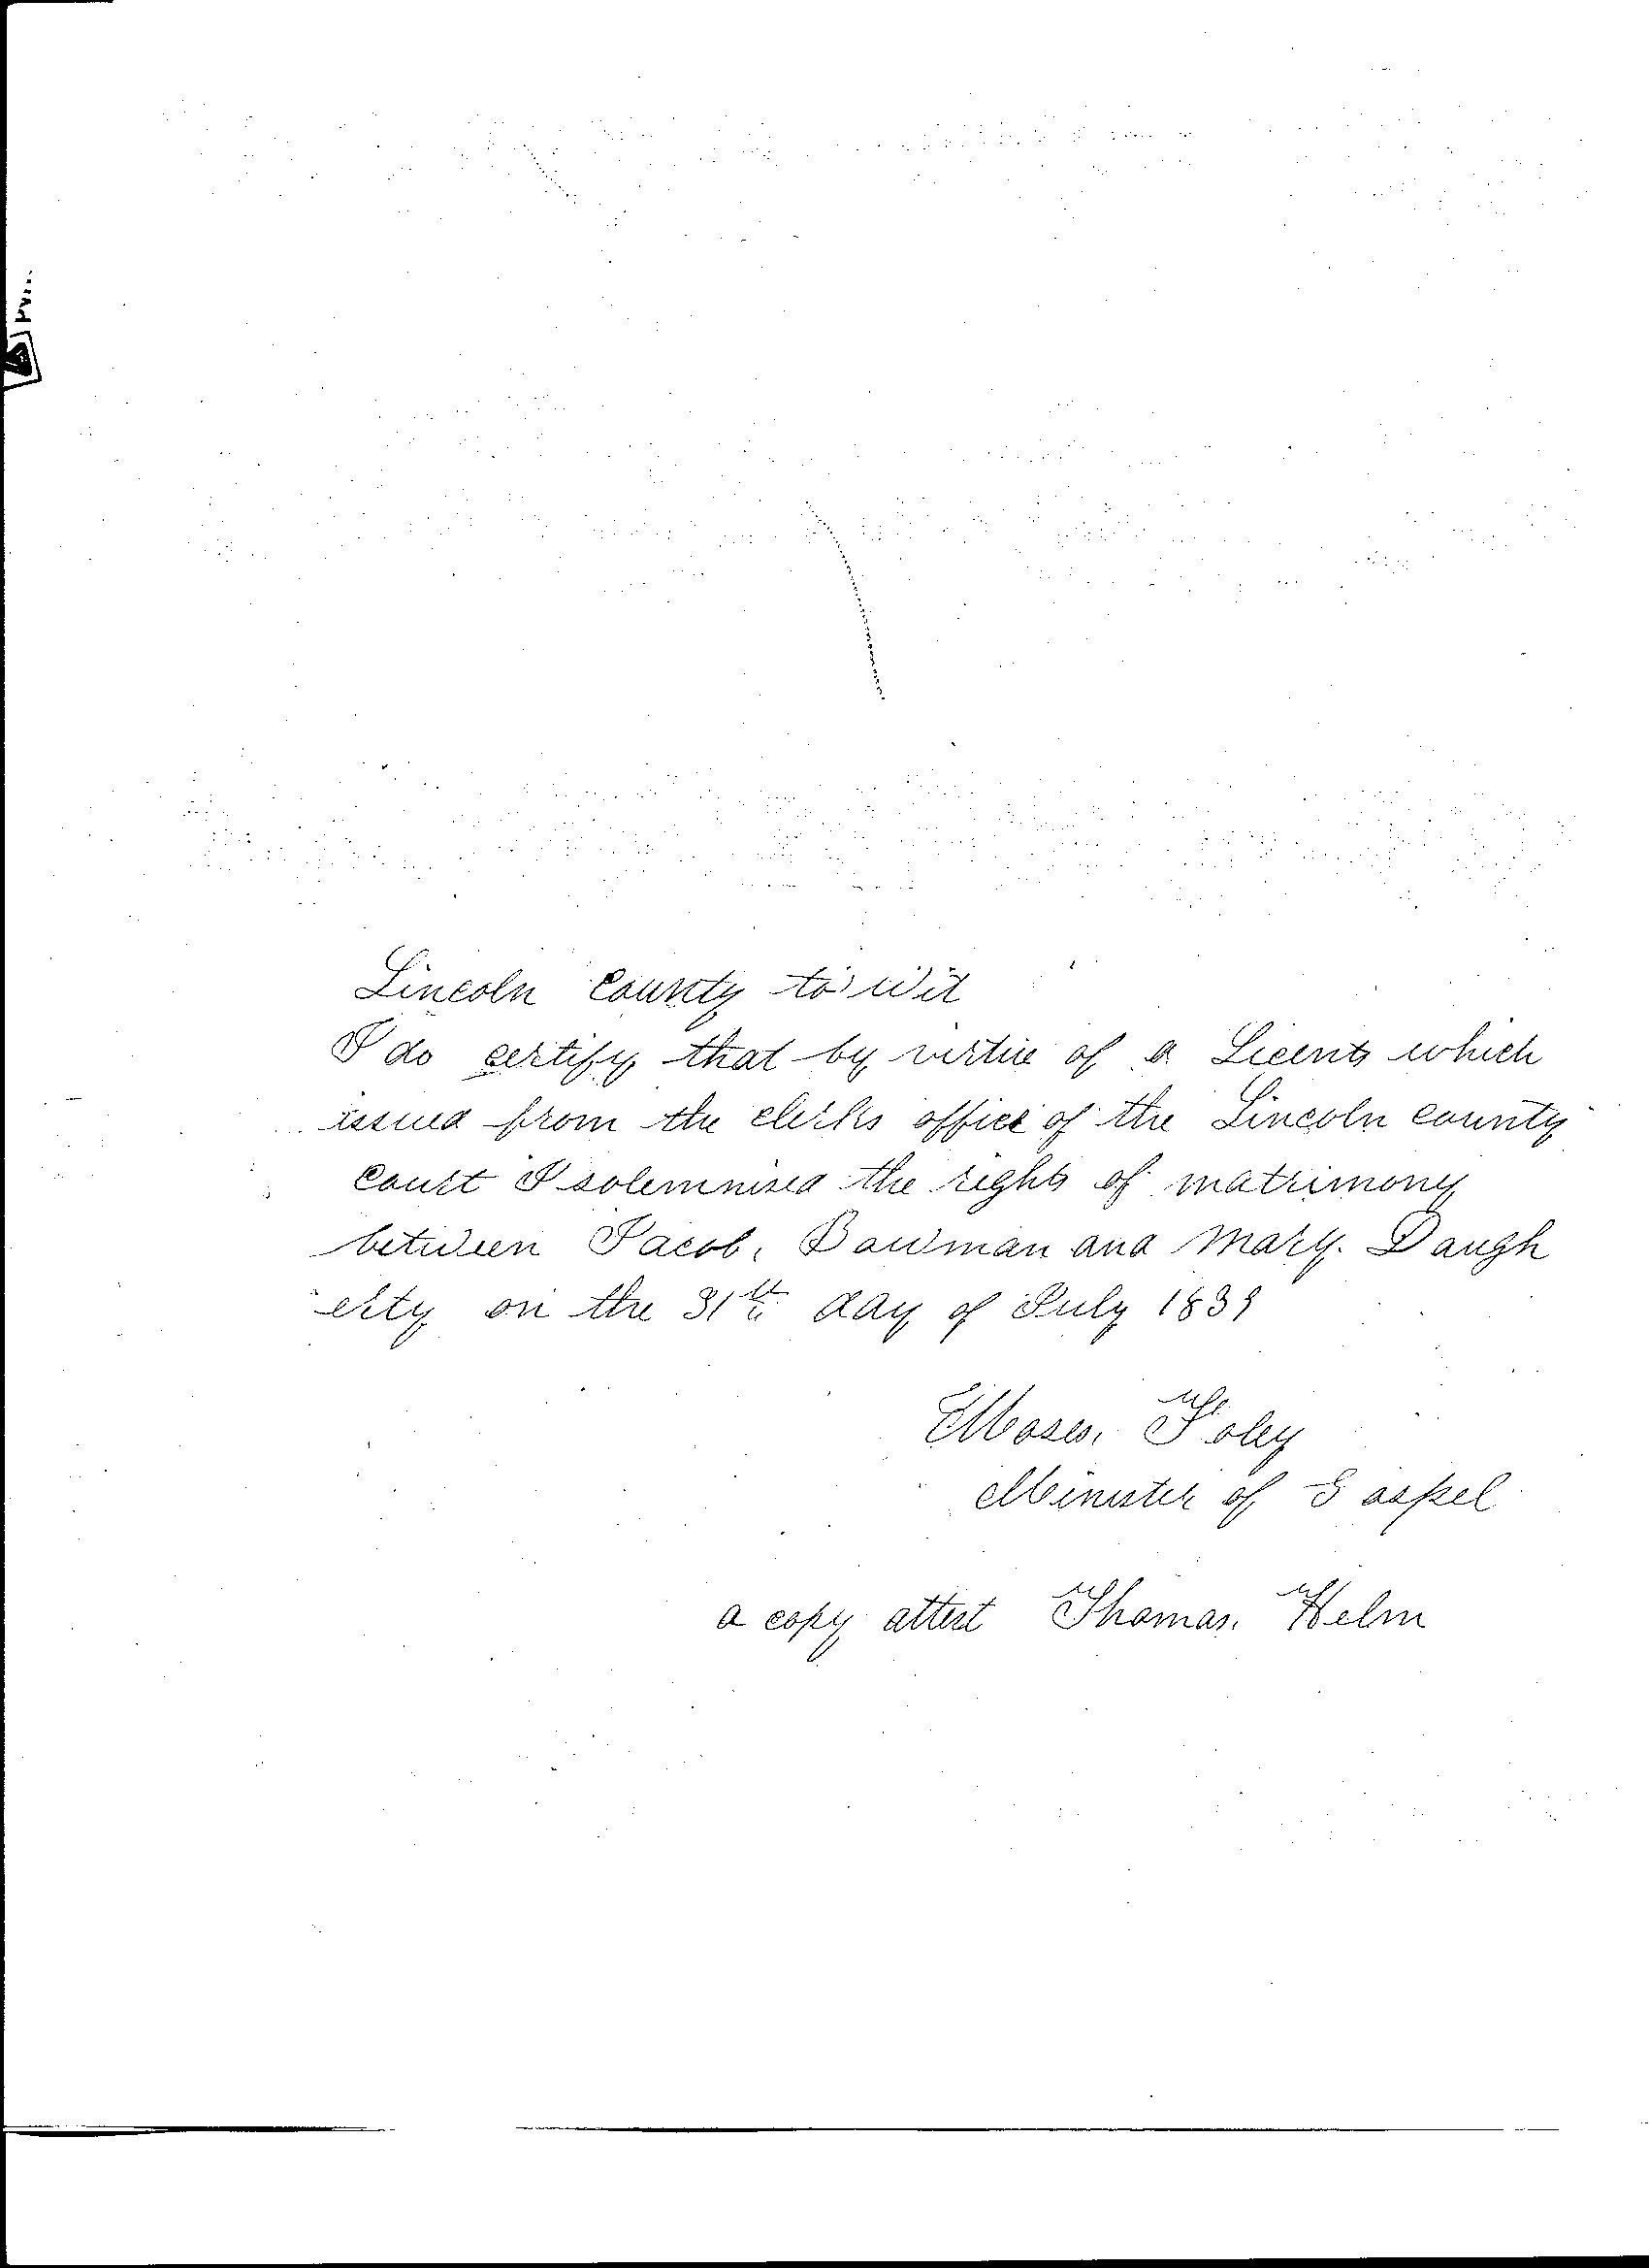 Lincoln county to wit
I do certify that by virtue of a Licents which
issued from the clerks office of the Lincoln county
court I solemnised the rights of matrimony
between Jacob. Bowman and Mary. Daugh
erty on the 31th day of July 1839
Moses. Foley
Minister of Gospel
a copy attest Thomas. Helm